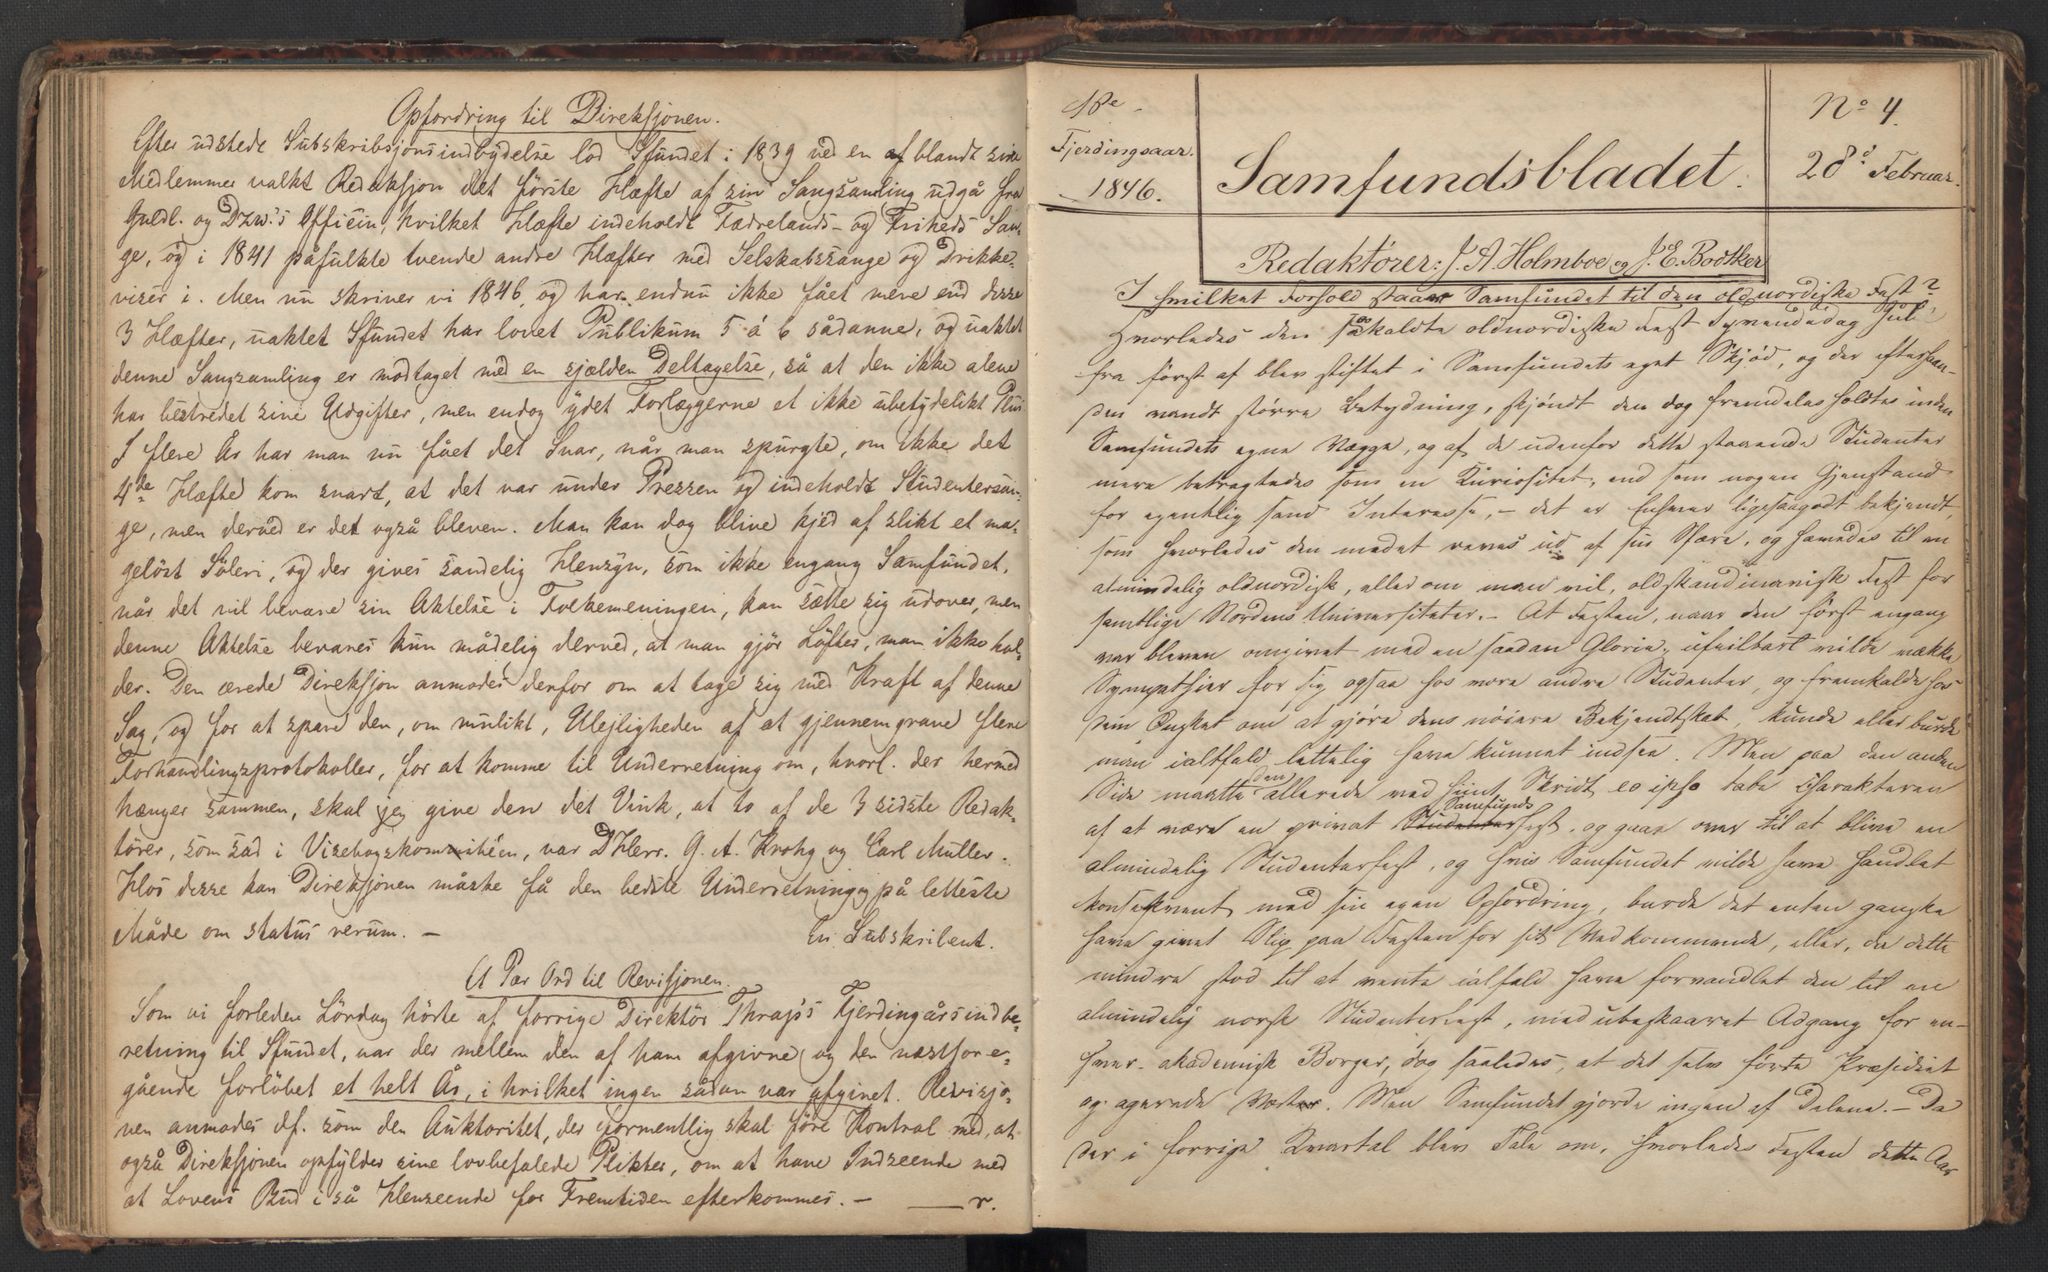 Opfordring til Direksjonen.
Efter udstede Subskribsjonsindbydelse lod Sfundet i 1839 ved en af blandt sine
Medlemmer valkt Redaksjon det første Hæfte af sin Sangsamling udgå fra
Guldb. og Dzw.'s Officin, hvilket Hæfte indeholdt Fædrelands- og Friheds San-
ge, og i 1841 påfulkte tvende andre Hæfter med Selskabssange og Drikke-
viser i. Men nu skriver vi 1846, og har endnu ikke fået mere end disse
3 Hæfter, uaktet Sfundet har lovet Publikum 5 á 6 sådanne, og uaktet
denne Sangsamling er modtaget med en sjælden Deltagelse, så at den ikke alene
har bestredet sine Udgifter, men endog ydet Forlæggerne et ikke ubetydelikt Plus.
I flere År har man nu fået det Svar, når man spurgte, om ikke det
4de Hæfte kom snart, at det var under Pressen og indeholdt Studentersan-
ge, men derved er det også bleven. Man kan dog blive kjed af slikt et ma-
geløst Søleri, og der gives sandelig Hensyn, som ikke engang Samfundet,
når det vil bevare sin Aktelse i Folkemeningen, kan sætte sig udover, men
denne Aktelse bevares kun mådelig derved, at man gjør Løfter, man ikke hol-
der. Den ærede Direksjon anmodes derfor om at tage sig med Kraft af denne
Sag, og for at spare den, om muulikt, Ulejligheden af at gjennemgrave flere
Forhandlingsprotokoller, for at komme til Underretning om, hvorl. der hermed
hænger sammen, skal jeg give den det Vink, at to af de 3 sidste Redak-
tører, som sad i Visebogskommitéen, var DHerr. G. A. Krohg og Carl Müller.
Hos disse kan Direksjonen måske få den bedste Underretning på letteste
Måde om status rerum. —
En Subskribent.
Et Par Ord til Revisjonen.
Som vi forleden Lördag hörte af forrige Direktör Thrap's Fjerdingårsindbe-
retning til Sfundet, var der mellem den af ham afgivne og den næstfore-
gående forløbet et helt År, i hvilket ingen sådan var afgivet. Revisjo-
nen anmodes df. som den Auktoritet, der formentlig skal føre Kontrol med, at
også Direksjonen opfylder sine lovbefalede Plikter, om at have Indseende med
at Lovens Bud i så Henseende for Fremtiden efterkommes. — — r.
18e
Fjerdingsaar.
1846.
Samfundsbladet.
No 4.
28de Februar.
Redaktører: J. A. Holmboe og J. E. Bødtker
I hvilket Forhold staar Samfundet til den oldnordiske Fest?
Hvorledes den saakaldte oldnordiske Fest Tyvendedag Jul
fra først af blev stiftet i Samfundets eget Skjød, og der efterhaan-
den vandt større Betydning, skjøndt den dog fremdeles holdtes inden
Samfundets egne Vægge, og af de udenfor dette staaende Studenter
mere betragtedes som en Kuriositet, end som nogen Gjenstand
for egentlig sand Interesse, — det er Enhver ligesaagodt bekjendt,
som hvorledes den medet reves ud af sin Sfære, og hævedes til en
almindelig oldnordisk, eller om man vil, oldskandinavisk Fest for
samtlige Nordens Universiteter. — At Festen, naar den først engang
var bleven omgivet med en saadan Glorie, ufeilbart vilde vække
Sympathier for sig ogsaa hos vore andre Studenter, og fremkalde hos
dem Ønsket om at gjøre dens nøiere Bekjendtskab, kunde eller burde
man ialtfald lettelig have kunnet indsee. Men paa den anden
Side maatte den allerede ved hiint Skridt eo ipso tabe Charakteren
af at være en privat Samfundsfest, og gaae over til at blive en
almindelig Studenterfest, og hvis Samfundet vilde have handlet
konsekvent med sin egen Opfordring, burde det enten ganske
have givet Slip paa Festen for sit Vedkommende, eller, da dette
mindre stod til at vente ialfald have forvandlet den til en
almindelig norsk Studenterfest, med ubeskaaret Adgang for en-
hver akademisk Borger, dog saaledes, at det selv førte Præsidiet
og agerede Vært. Men Samfundet gjorde ingen af Delene. — Da
der i forrige Kvartal blev Tale om, hvorledes Festen dette Aar